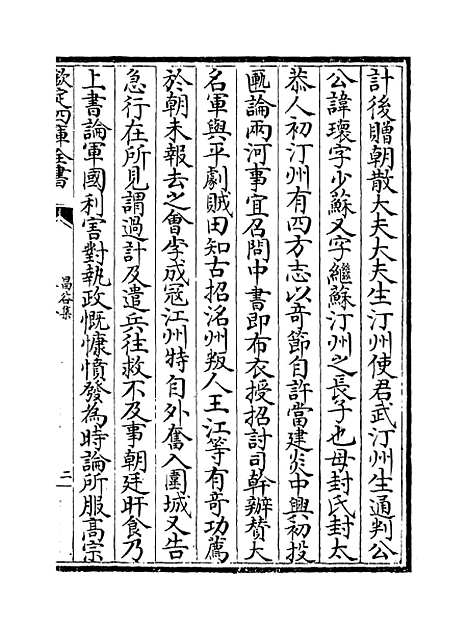 計後贈朝散大夫大夫生汀州使君武汀州生通判公
公諱瓌字少蘇又字繼蘇汀州之長子也母封氏封太
恭人初汀州有四方志以竒節自許當建炎中興初投
匭論兩河事宜召問中書即布衣授招討司幹辦賛大
名軍與平劇賊田知古招洺州叛人王江等有竒功薦
於朝未報去之會李成冦江州特自外奮入圍城又告
急行在所見謂過計及遣兵往救不及事朝廷旰食乃
上書論軍國利害對執政慨慷憤發為時論所服髙宗
欽定四庫全書
昌谷集
三